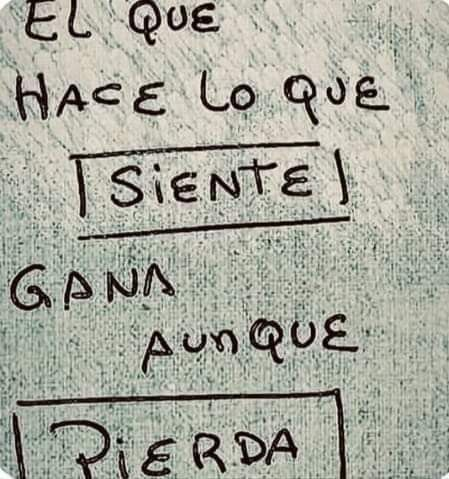 EL QUE
HACE LO QUE
SIENTE
GANA
AUNQUE
PIERDA